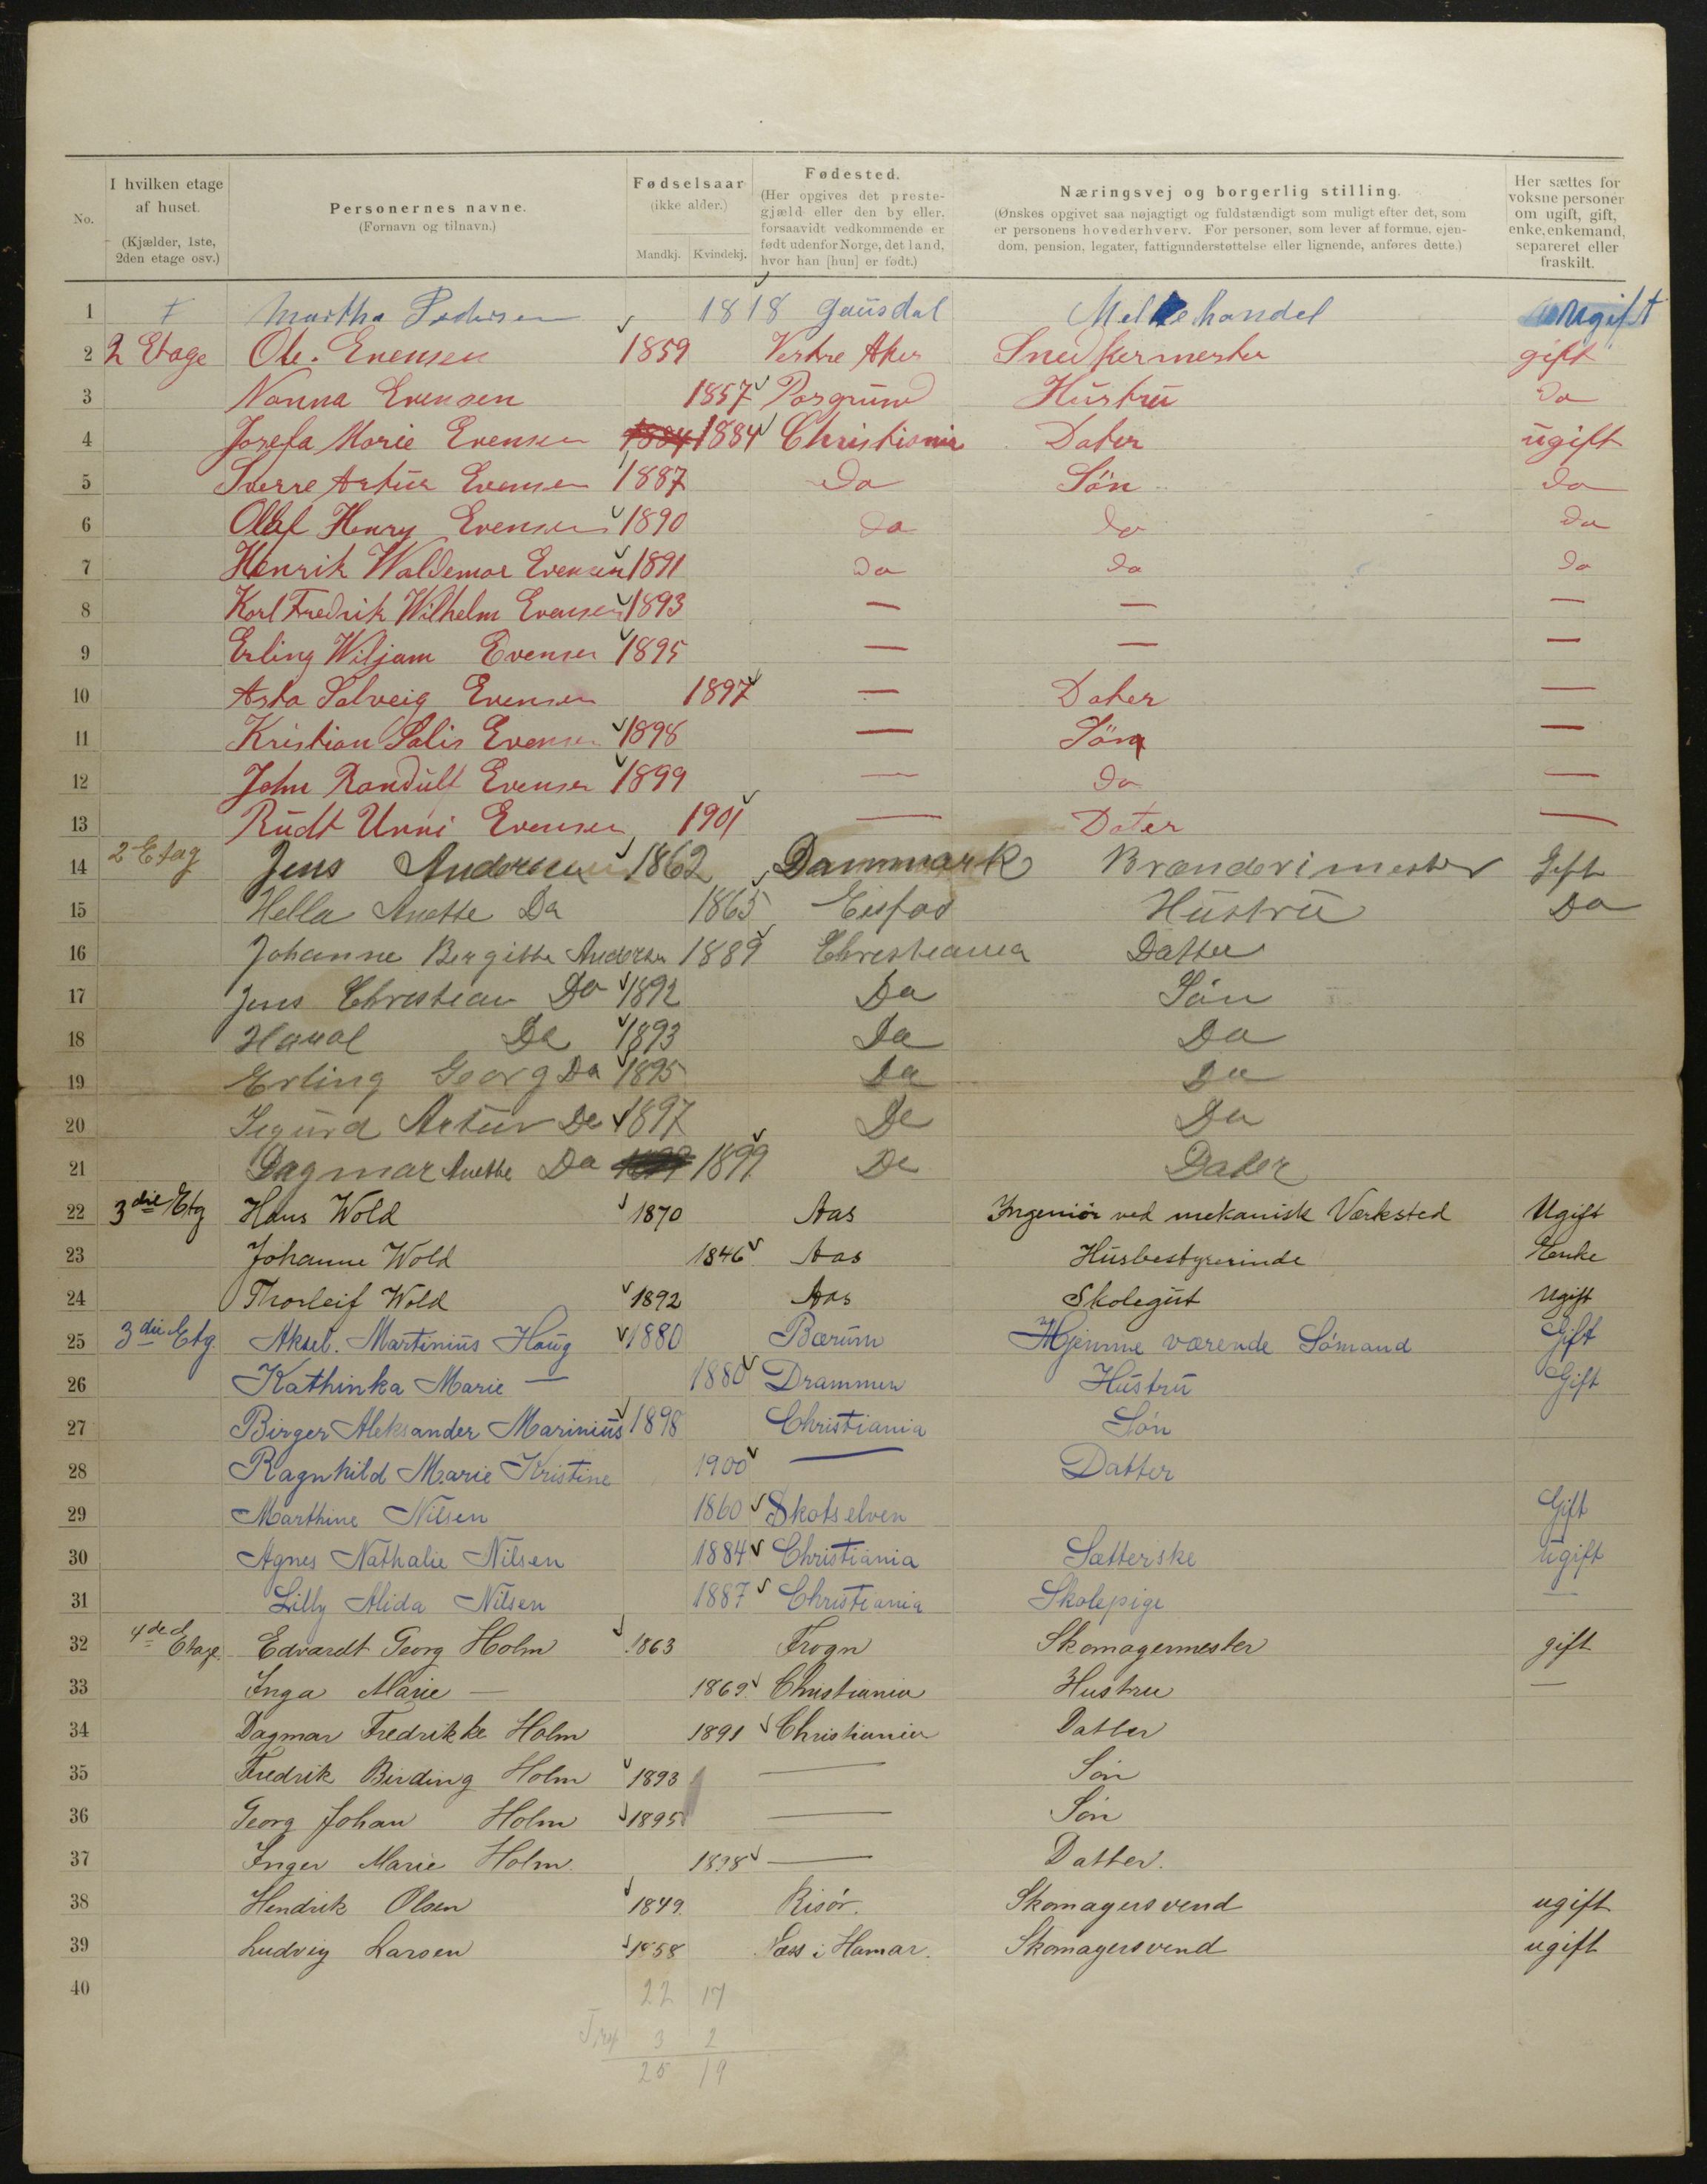 No.
I hvilken etage af huset. (Kjælder, 1ste, 2den etage osv.)
Personernes navne. (Fornavn og tilnavn.)
Fødselsaar (ikke alder.) Mandkj. Kvindekj.
Fødested. (Her opgives det prestegjæld eller den by eller, forsaavidt vedkommende er født udenfor Norge, det land, hvor han [hun] er født.)
Næringsvej og borgerlig stilling. (Ønskes opgivet saa nøjagtigt og fuldstændigt som muligt efter det, som er personens hovederhverv. For personer, som lever af formue, ejendom, pension, legater, fattigunderstøttelse eller lignende, anføres dette.)
Her sættes for voksne personer om ugift, gift, enke, enkemand, separeret eller fraskilt.
1 Martha Pedersen 1818 Gausdal Melkehandel ugift
2 2 Etage Ole. Evensen 1859 Vestre Aker Snedkermester gift
3 Nanna Evensen 1857 Porsgrund Hustru Do
4 Josefa Marie Evensen 1884 1884 Christiania Dater ugift
5 Sverre Artur Evensen 1887 Do Søn do
6 Olaf Henry Evensen 1890 do do do
7 Henrik Waldemar Evensen 1891 do do do
8 Karl Fredrik Wilhelm Evensen 1893 — — —
9 Erling Wiljam Evensen 1895 — — —
10 Asta Solveig Evensen 1897 — Dater —
11 Kristian Salis Evensen 1898 — Søn —
12 John Randulf Evensen 1899 — do —
13 Rudt Unni Evensen 1901 — Dater —
14 2 Etag Jens Andersen 1862 Dannmark Brænderimester Gift
15 Hella Anette Do 1865 Hustru Do
16 Johanne Bergitte Andersen 1889 Christiania Datter
17 Jens Christian Do 1892 Do Søn
18 Do 1893 Do Do
19 Erling Georg Do 1895 Do Do
20 Sigurd Artur Do 1897 Do Do
21 Dagmar Anette Do 1899 Do Dater
22 3die Etg Hans Wold 1870 Aas Ingeniør ved mekanisk Værksted Ugift
23 Johanne Wold 1846 Aas Husbestyrerinde Enke
24 Thorleif Wold 1892 Aas Skolegut Ugift
25 3die Etg. Aksel. Martinius Haug 1880 Bærum Hjemme værende Sømand Gift
26 Kathinka Marie — 1880 Drammen Hustru Gift
27 Birger Aleksander Marinius 1898 Christiania Søn
28 Ragnhild Marie Kristine 1900 — Datter
29 Marthine Nilsen 1860 Skotselven Gift
30 Agnes Nathalie Nilsen 1884 Christiania Sætterske ugift
31 Lilly Alida Nilsen 1887 Christiania Skolepige —
32 4de Etage. Edvardt Georg Holm 1863 Frogn Skomagermester gift
33 Inga Marie — 1869 Christiania Hustru —
34 Dagmar Fredrikke Holm 1891 Christiania Datter
35 Fredrik Birding Holm 1893 — Søn
36 Georg Johan Holm 1895 — Søn
37 Inger Marie Holm. 1898 — Datter.
38 Hendrik Olsen 1849. Risør. Skomagersvend ugift
39 Ludvig Larsen 1858 i Hamar. Skomagersvend ugift
40
22 17
3 2
25 19